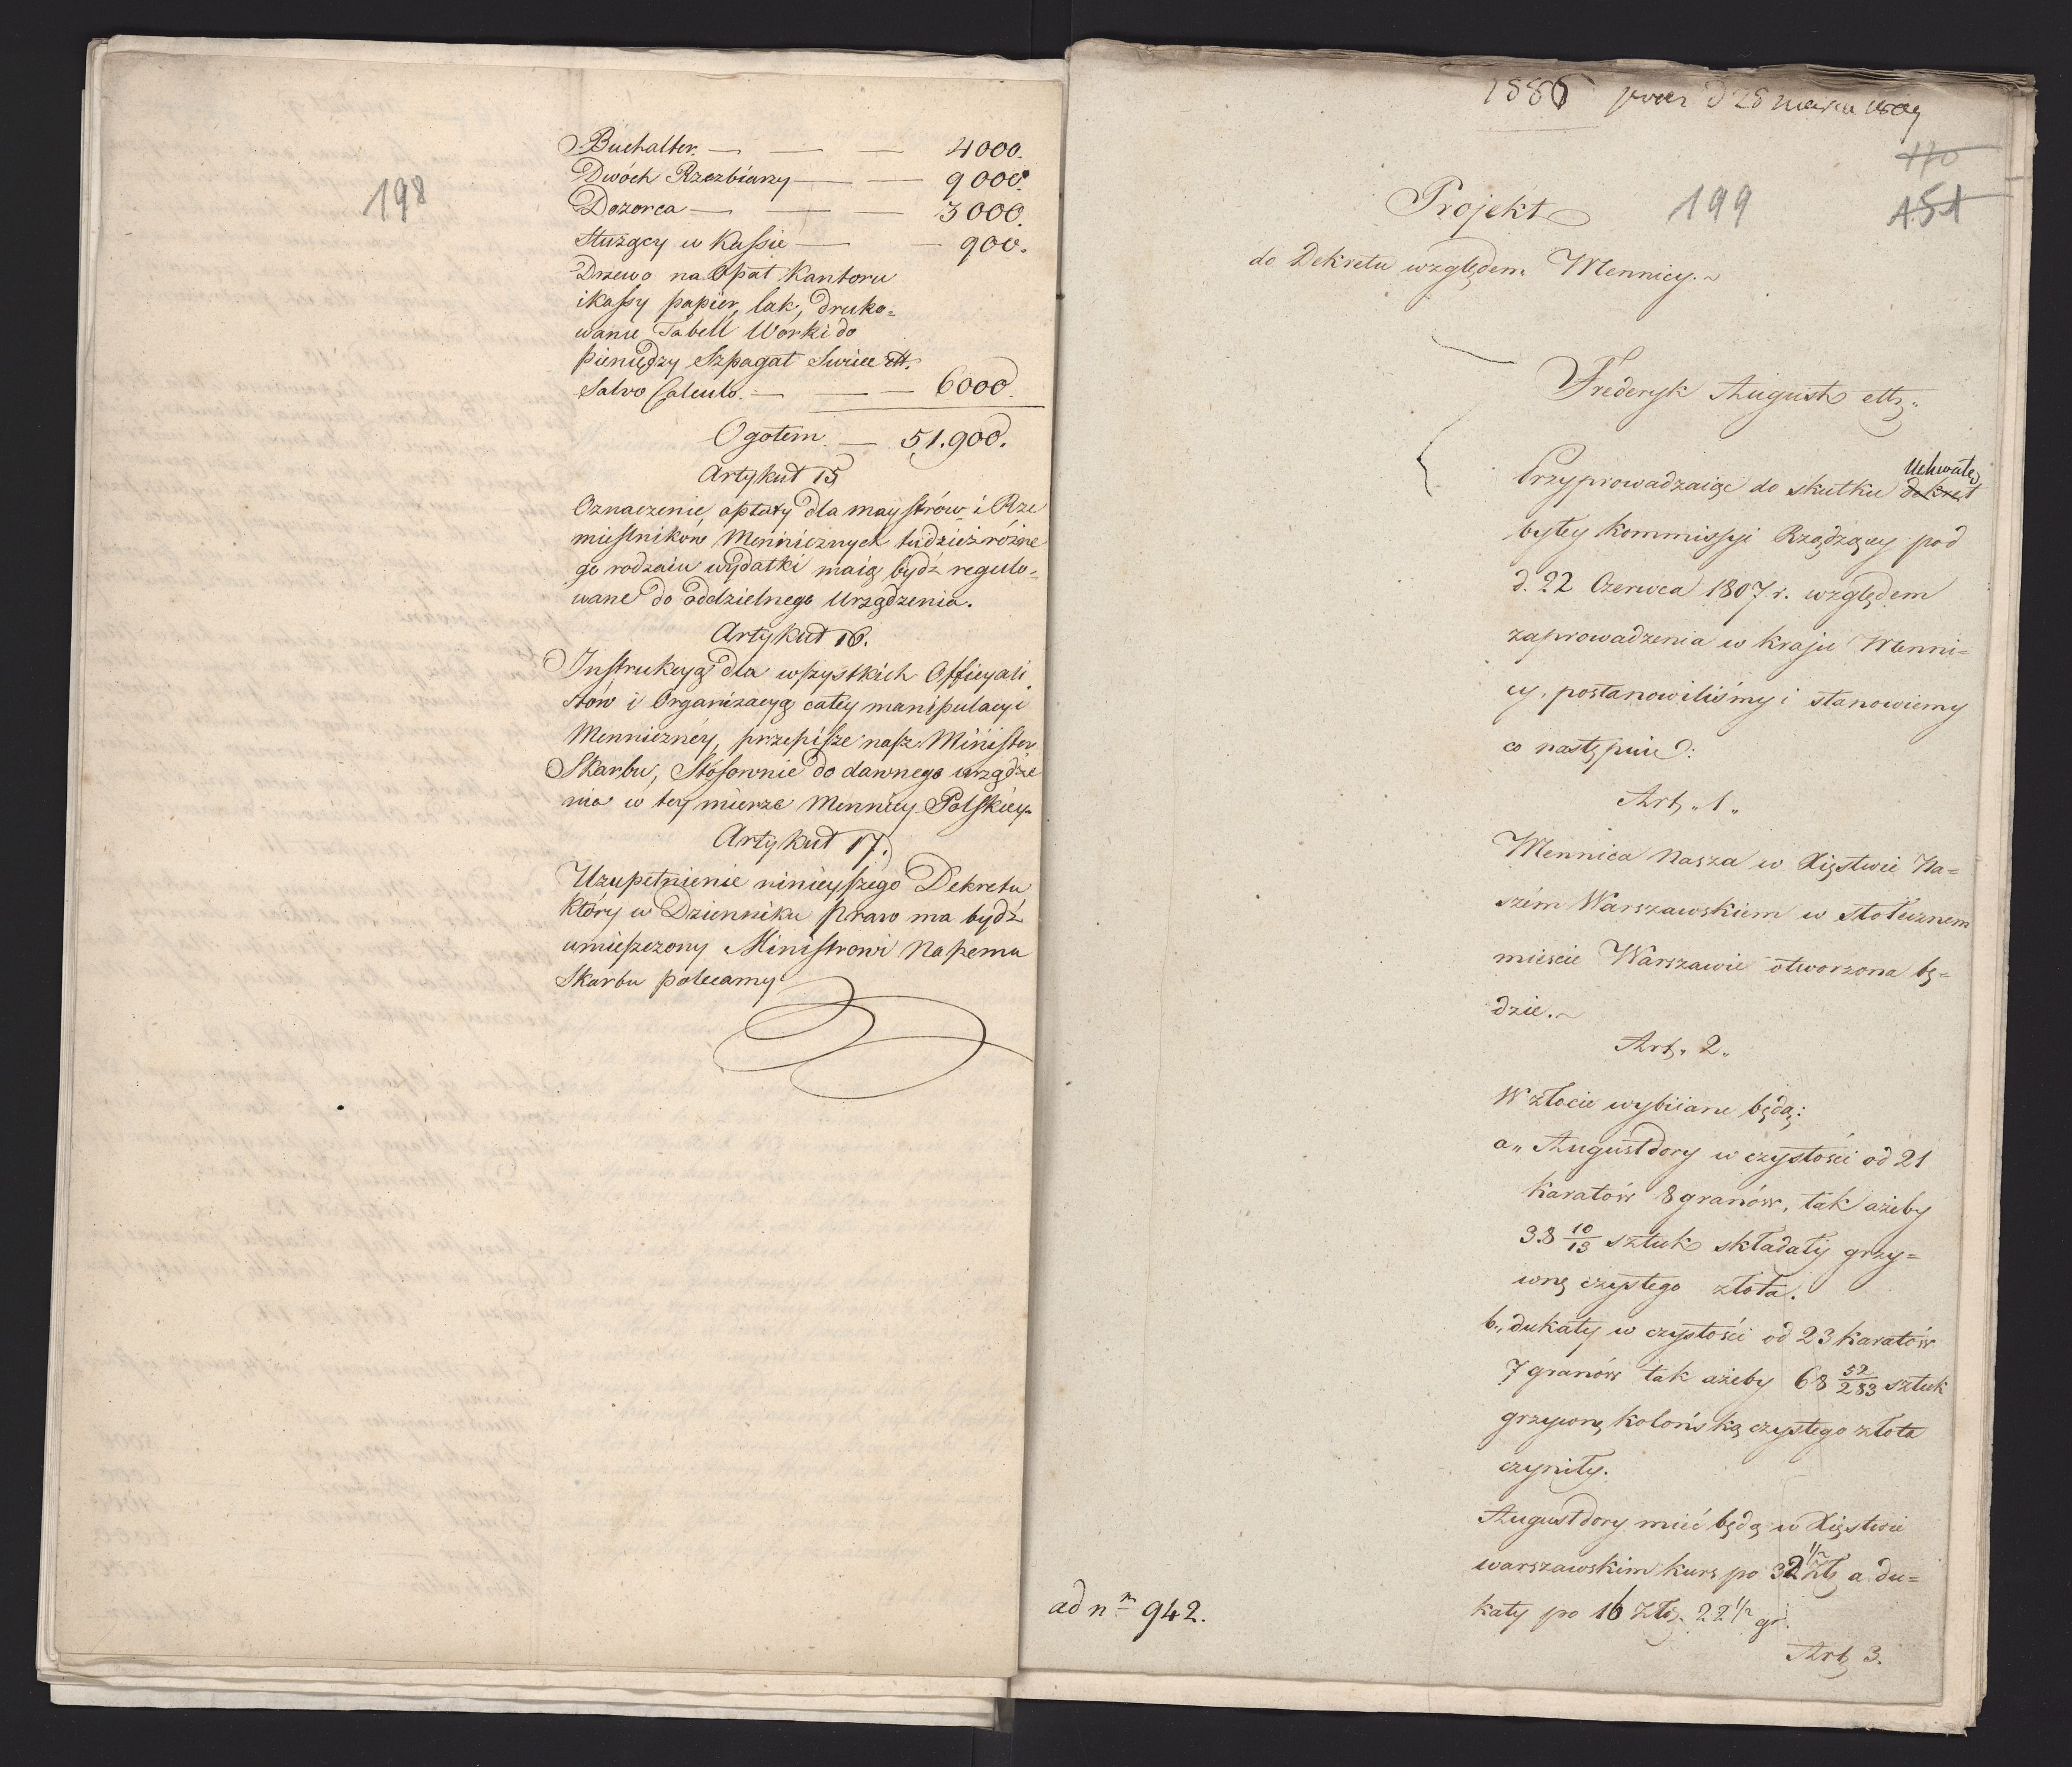 198
Buchalter. — — — 4000.
Dwóch Rzezbiarzy — — 9000.
Dozorca — — — 3000.
Służący w Kassie — — 900.
Drzewo na Opał Kantoru
i kassy papier, lak, druko=
wanie Tabell Worki do
pieniędzy Szpagat Swiece ett.
Salvo Calculo. — — — 6000.
Ogołem. — 51.900.
Artykuł 15
Oznaczenie opłaty dla maystrów i Rze
miestników Mennicznych tudzież rożne
go rodzaiu wydatki maią bydź regulo=
wane do oddzielnego Urządzenia.
Artykuł 16.
Instrukcyą dla wszystkich Officyali
stów i Organizacyą całey manipulacyi
Menniczney, przepisze nasz Minister
Skarbu, Stosownie do dawnego urządze
nia w tey mierze Mennicy Polskiey.
Artykuł 17.
Uzupełnienie ninieyszego Dekretu
który w Dzienniku praw ma bydź
umieszczony Ministrowi Naszemu
Skarbu polecamy
1886 d 28
170
199
151
Projekt
do Dekretu względem Mennicy.~
Frederyk August ett.
Uchwałę
Przyprowadzaiąc do skutku dekret
byłey Kommissyi Rządzącey pod
d. 22 Czerwca 1807 r. względem
zaprowadzenia w kraju Menni=
cy, postanowiliśmy i stanowiemy
co następuie:
Art. 1.
Mennica Nasza w Xięstwie Na=
szém Warszawskiem w stołecznem
mieście Warszawie otworzona bę=
dzie.~
Art. 2.
W złocie wybiiane będą:
a„ Augustdory w czystości od 21
karatów 8 granów, tak ażeby
38 10/13 sztuk składały grzy=
wnę czystego złota.
b„ dukaty w czystości od 23 karatów
7 granów tak ażeby 68 52/283 sztuk
grzywnę kolońską czystego złota
czyniły.
Augustdory mieć będą w Xięstwie
warszawskim kurs po 32 1/2 Zł. a du=
katy po 16 Złt. 22 1/2 gr.
Art. 3.
ad nrm 942.